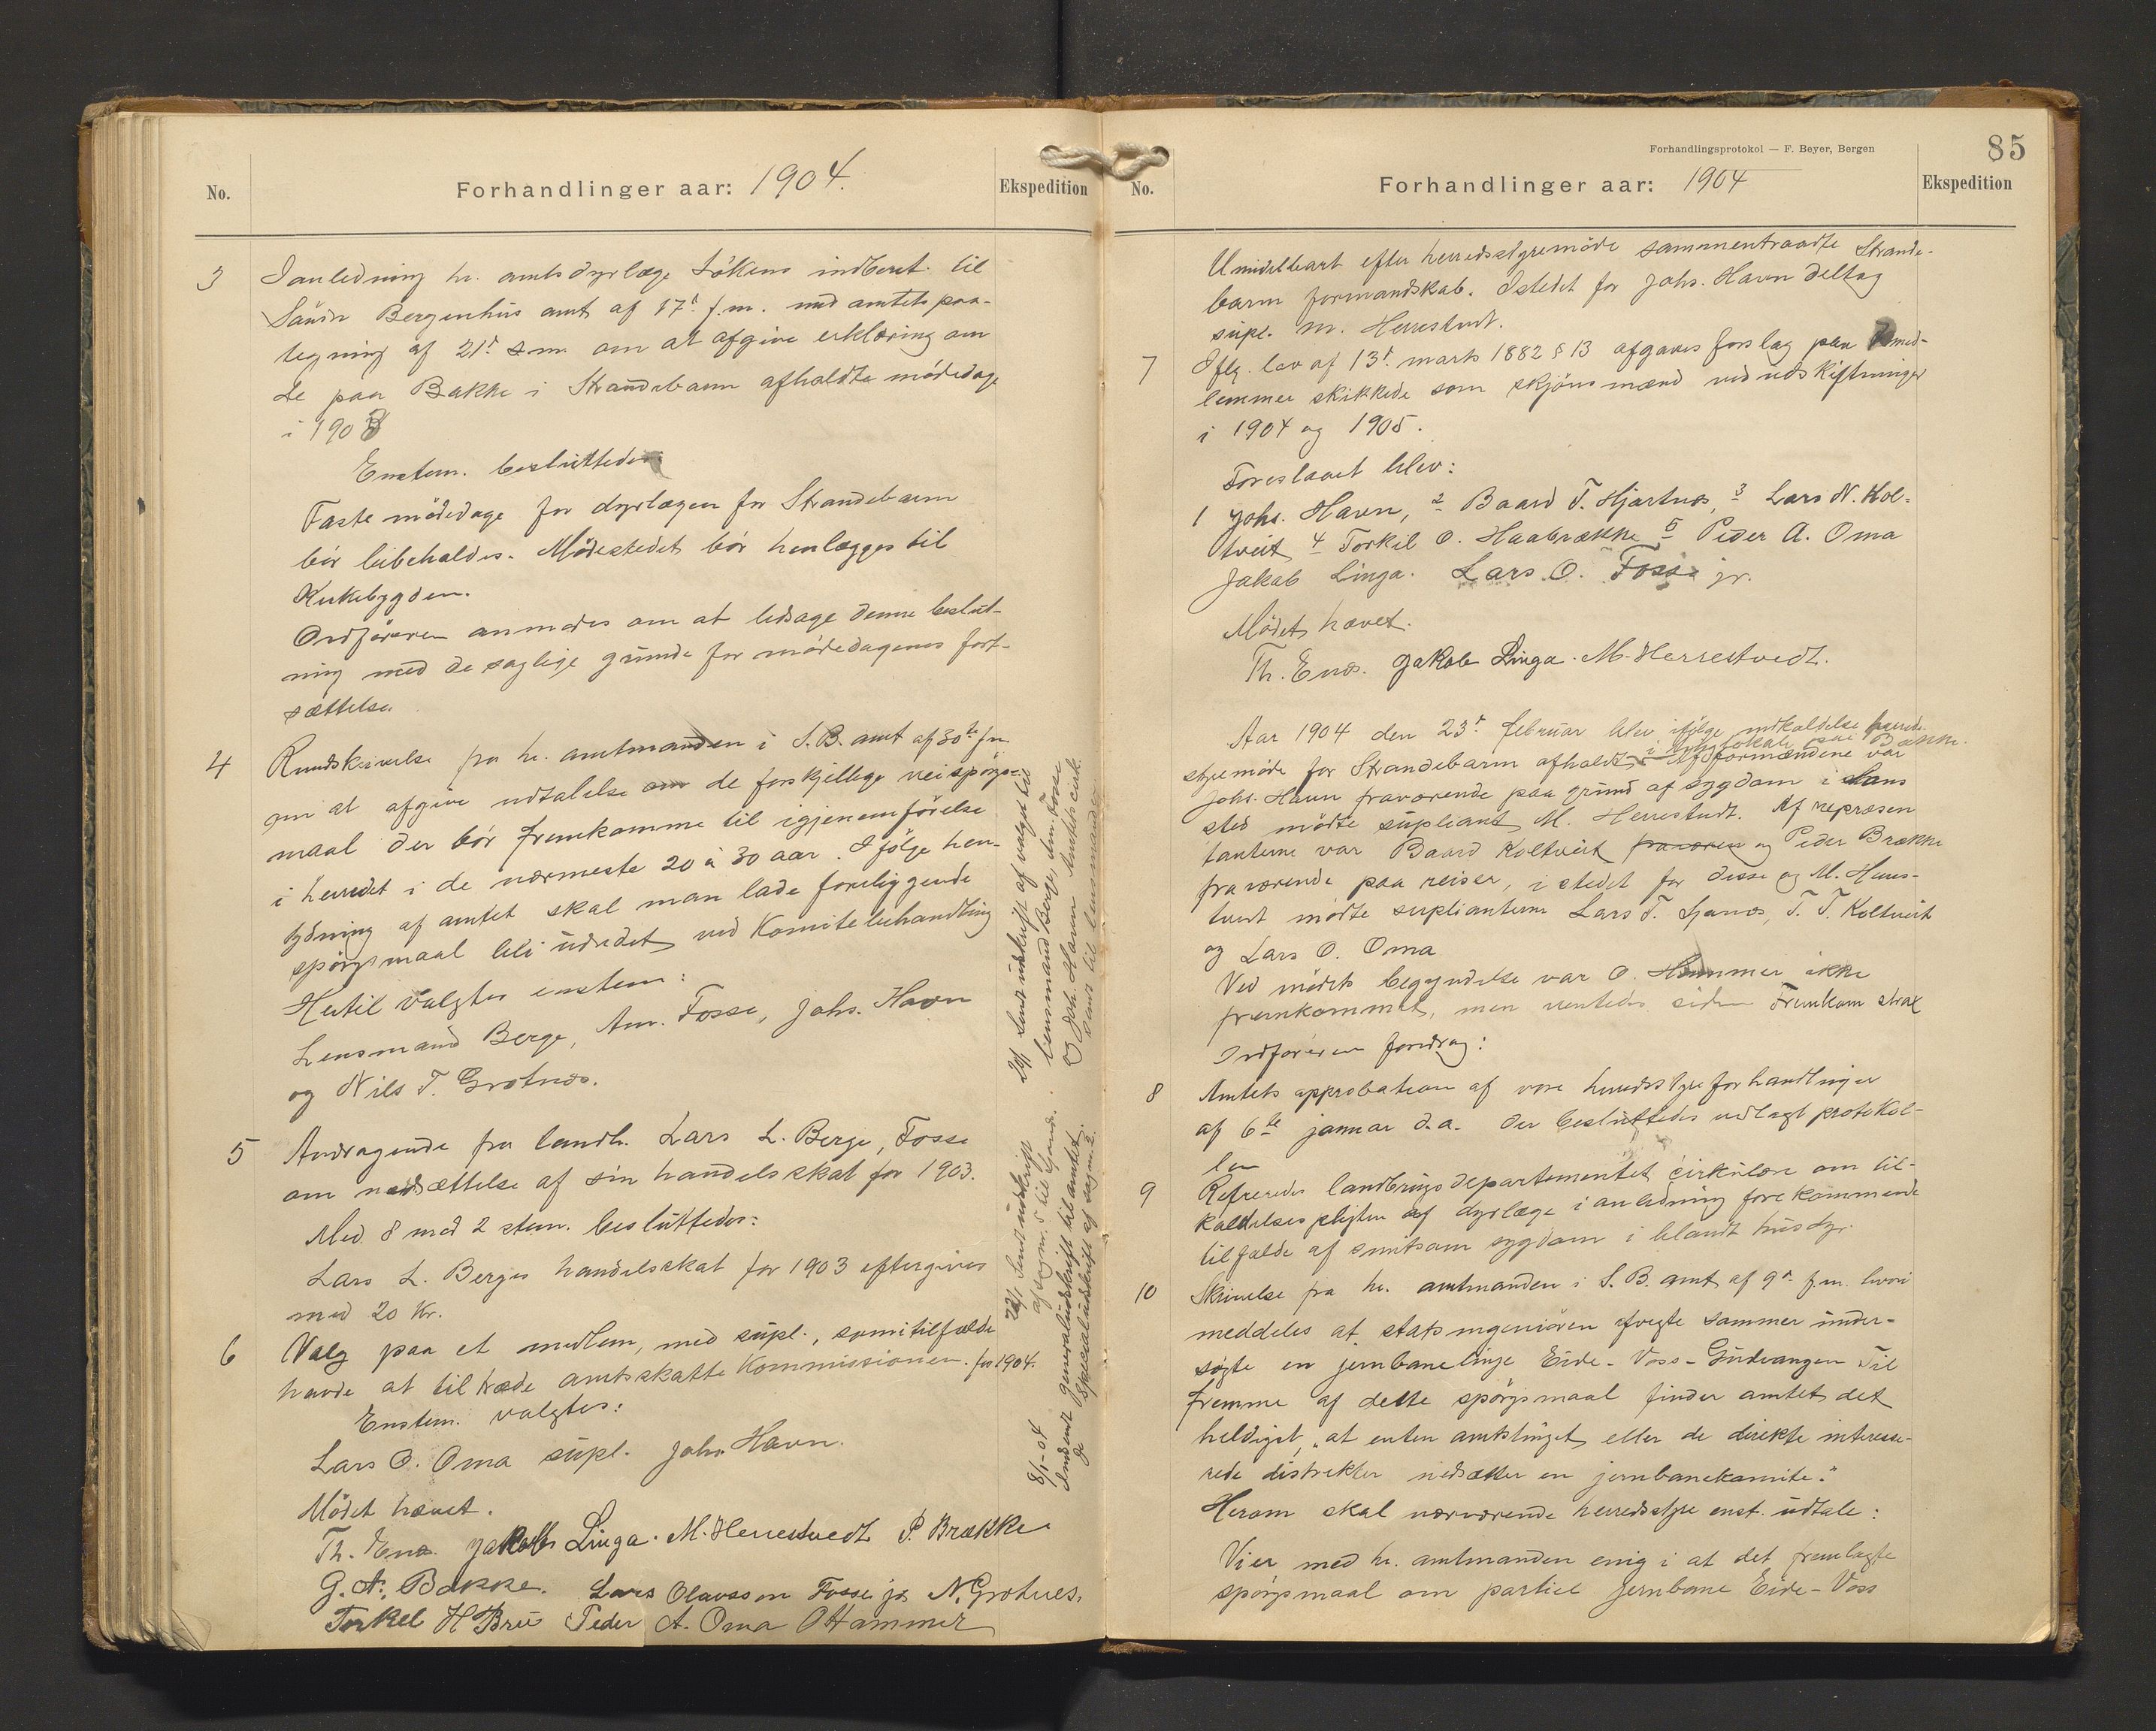 No.
Forhandlinger aar: 1904.
Ekspedition
3
I anledning hr. amtsdyrlæge Søkens indberet. til
Søndr Bergenhus amt af 17d f.m. med amtets paa-
tegning af 21d s.m. om at afgive erklæring om
de paa Bakke i Strandebarm afholdte mødedage
i 1903
Enstem. besluttedes:
Faste mødedage for dyrlægen for Strandebarm
bør bibeholdes. Mødestedet bør henlægges til
Kirkebygden.
Ordføreren anmodes om at ledsage denne beslut-
ning med de saglige grunde for mødedagenes fort-
sættelse.
4
Rundskrivelse fra hr. amtmanden i S. B. amt af 30te f.m.
om at afgive udtalelse om de forskjellige veispørgs-
maal der bør fremkomme til igjenemførelse
i herredet i de nærmeste 20 à 30 aar. Ifølge hen-
tydning af amtet skal man lade foreliggende
spørgsmaal bli udredet ved Komitebehandling
Hertil valgtes enstem:
Lensmand Berge, Am. Fosse, Johs. Havn
og Nils T. Grotnæs.
5
Andragende fra landh. Lars L. Berge, Fosse
om nedsættelse af sin handelsskat for 1903.
Med 8 mod 2 stem. besluttedes:
Lars L. Berges handelsskat for 1903 eftergives
med 20 Kr.
6
Valg paa et medlem, med supl., som i tilfælde
havde at tiltræde amtsskatte Kommissionen for 1904.
Enstem. valgtes:
Lars O. Oma supl. Johs Havn.
Mødet hævet.
Th. Enæs. Jakob Linga. M. Herrestvedt P. Brække
G. N. Bakke. Lars Olavsson Fosse jr N. Grotnes.
Torkel H Bru Peder A. Oma O Hammer
29/1 Sendt udskrift af valget til
lensmand Berge, Am. Fosse
og Joh. Havn Amtets cirk.
sendt til lensmanden
22/1 Sendt udskrift
af sag nr. 5 til
8/1-04
Indsendt generaludskrift til amtet.
do Specialudskrift af sag nr 2.
Forhandlingsprotokol — F. Beyer, Bergen
85
No.
Forhandlinger aar: 1904
Ekspedition
Umidelbart efter herredsstyremøde sammentraadte Strande-
barm formandskab. Istedet for Johs. Havn deltog
supl. M. Herrestvedt.
7
Iflg. lov af 13d marts 1882 § 13 afgaves forslag paa 7 med-
lemmer skikkede som skjønsmænd ved udskiftninger
i 1904 og 1905.
Foreslaaet blev:
1 Johs. Havn, 2 Baard T. Hjartnæs, 3 Lars N. Kol-
tveit 4 Torkil O. Haabrække 5 Peder A. Oma
Jakob Linga. Lars O. Fosse jr.
Mødet hævet.
Th. Enæs. Jakob Linga. M. Herrestvedt.
Aar 1904 den 23d februar blev ifølge indkaldelse herreds-
styremøde for Strandebarm afholdt i tinglokale paa Bakke.
Af formændene var
Johs. Havn fraværende paa grund af sygdom i hans
sted mødte supliant M. Herrestvedt. Af repræsen
tanterne var Baard Koltveit fraværen og Peder Brække
fraværende paa reiser, i stedet for disse og M. Herres-
tvedt mødte suplianterne Lars T. Tjønæs, T. T. Koltveit
og Lars O. Oma
Ved mødets begyndelse var O. Hammer ikke
fremkommet, men ventedes siden Fremkom strax
Ordføreren foredrog:
8
Amtets approbation af vore herredsstyreforhandlinger
af 6te januar d.a. der besluttedes vedlagt protokol-
len
9
Refereredes landbrugsdepartementet cirkulære om til-
kaldelsespligten af dyrlæge i anledning forekommende
tilfælde af smitsom sygdom i blandt husdyr.
10
Skrivelse fra hr. amtmanden i S. B. amt af 9d f.m. hvori
meddeles at statsingeniøren afvigte sommer under-
søgte en jernbanelinje Eide - Voss - Gudvangen Til
fremme af dette spørgsmaal finder amtet det
heldigst, "at enten amtstinget eller de direkte interesse-
rede distrikter nedsætter en jernbanekomite."
Herom skal nærværende herredsstyre enst. udtale:
Vi er med hr. amtmanden enig i at det fremlagte
spørgsmaal om partiel jernbane Eide - Voss